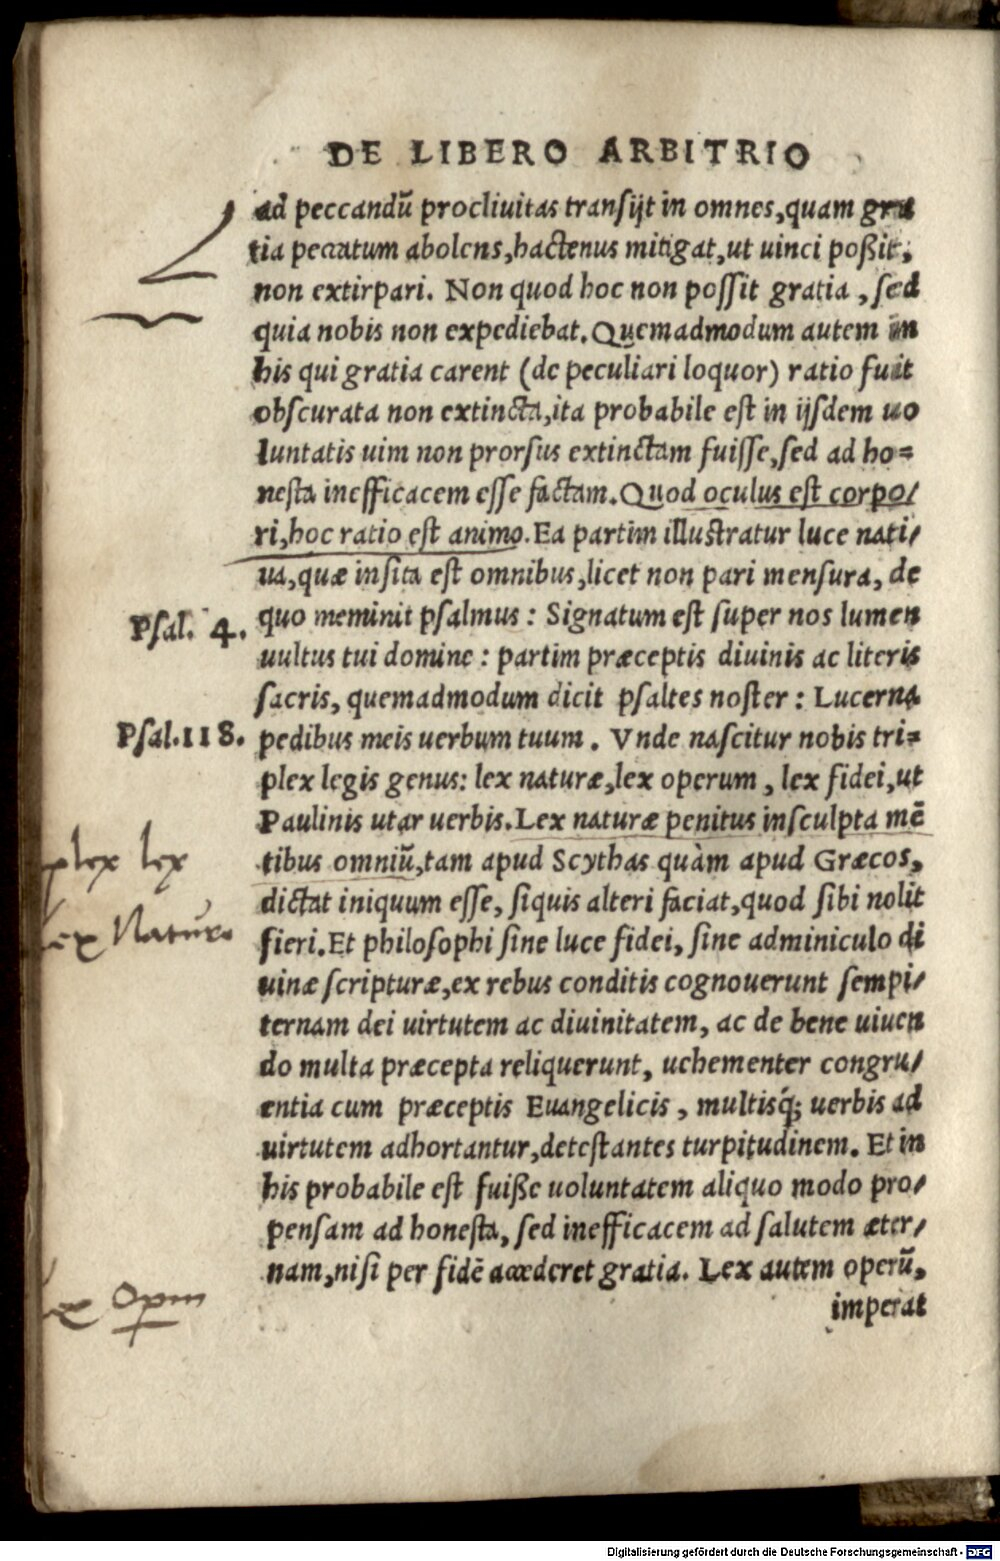 DE LIBERO ARBITRIO
ad peccandũ procliuitas transijt in omnes, quam gra
tia peccatum abolens, hactenus mitigat, ut uinci poßit,
non extirpari. Non quod hoc non possit gratia, sed
quia nobis non expediebat. Quemadmodum autem in
his qui gratia carent (de peculiari loquor) ratio fuit
obscurata non extincta, ita probabile est in ijsdem uo
luntatis uim non prorsus extinctam fuisse, sed ad ho=
nesta inefficacem esse factam. Quod oculus est corpo/
ri, hoc ratio est animo. Ea partim illustratur luce nati/
ua, quæ insita est omnibus, licet non pari mensura, de
Psal. 4. quo meminit psalmus: Signatum est super nos lumen
uultus tui domine: partim præceptis diuinis ac literis
sacris, quemadmodum dicit psaltes noster: Lucerna
Psal.118. pedibus meis uerbum tuum. Vnde nascitur nobis tri=
plex legis genus: lex naturæ, lex operum, lex fidei, ut
Paulinis utar uerbis. Lex naturæ penitus insculpta mẽ
plex lex tibus omniũ, tam apud Scythas quàm apud Græcos,
dictat iniquum esse, siquis alteri faciat, quod sibi nolit
ex Naturæ fieri. Et philosophi sine luce fidei, sine adminiculo di
uinæ scripturæ, ex rebus conditis cognouerunt sempi/
ternam dei uirtutem ac diuinitatem, ac de bene uiuen
do multa præcepta reliquerunt, uehementer congru/
entia cum præceptis Euangelicis, multisq́; uerbis ad
uirtutem adhortantur, detestantes turpitudinem. Et in
his probabile est fuiße uoluntatem aliquo modo pro/
pensam ad honesta, sed inefficacem ad salutem æter/
nam, nisi per fidẽ accederet gratia. Lex autem operũ,
ex Opm
imperat
Digitalisierung gefördert durch die Deutsche Forschungsgemeinschaft - DFG